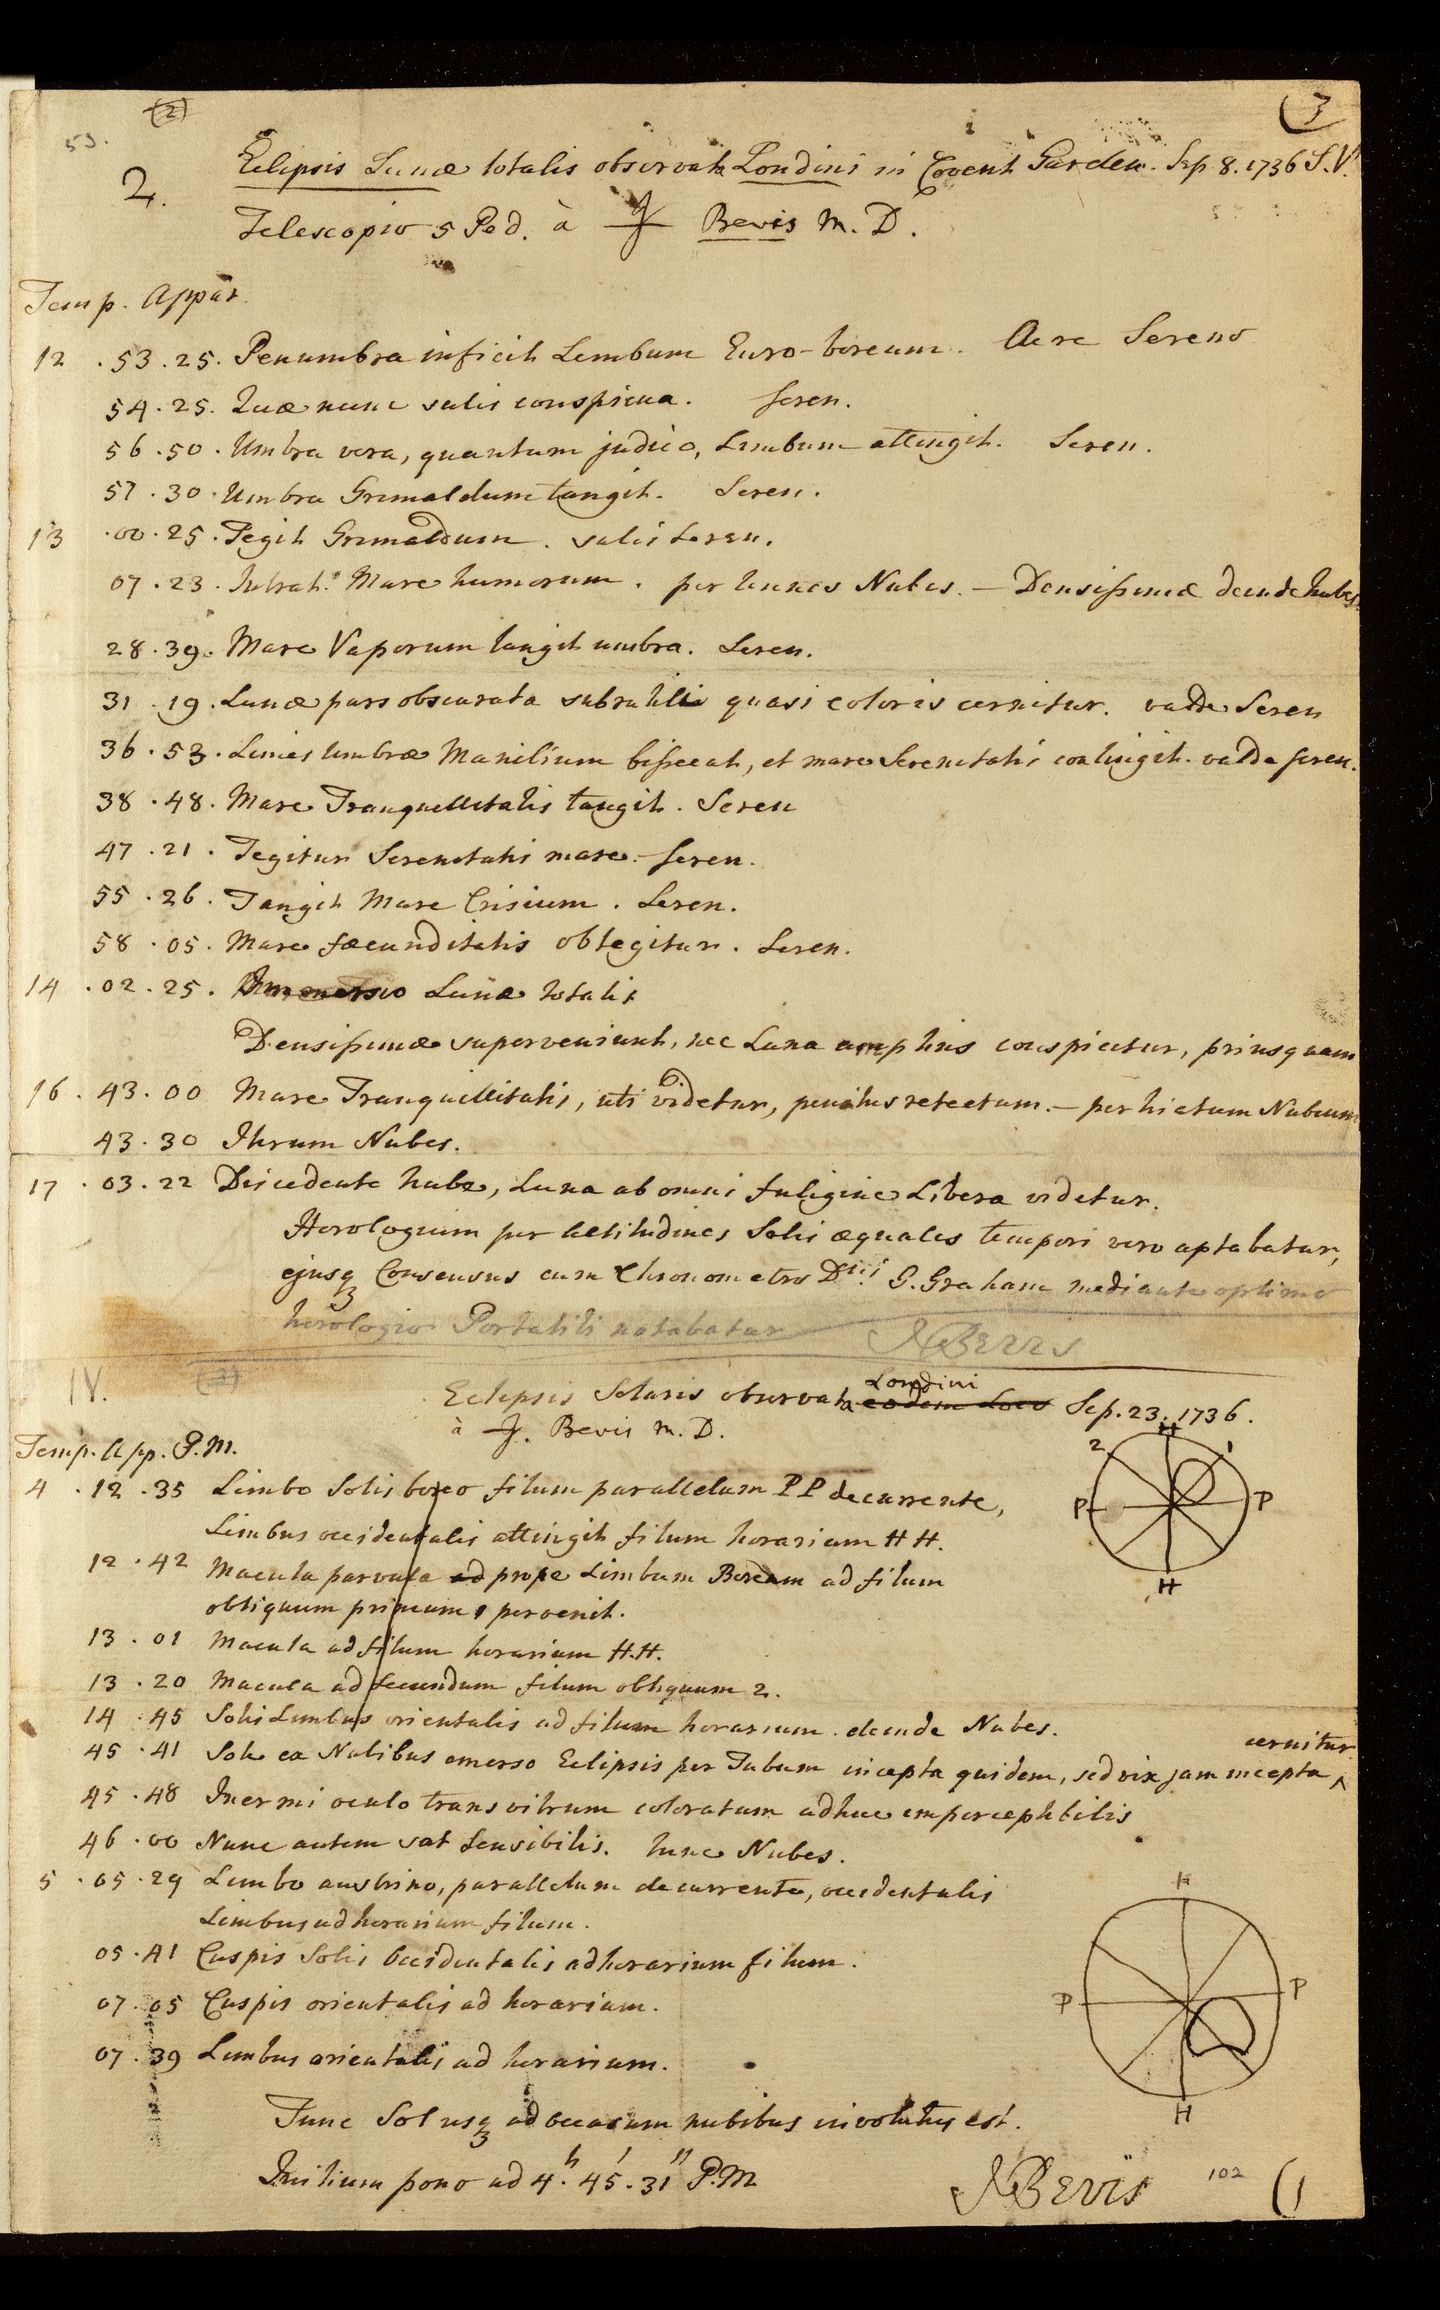 (2)
(3
53.
2.
Eclipsis Lunæ totalis observata Londini in Covent Garden. Sep. 8. 1736 S.V.
Telescopio 5 Ped. à J Bevis M. D.
Temp. Appar.
12 . 53 . 25 . Penumbra inficit Limbum Euro-boreum. Aere Sereno
54 . 25 . Quæ nunc satis conspicua. Seren.
56 . 50 . Umbra vera, quantum judico, Limbum attingit. Seren.
57 . 30 . Umbra Grimaldum tangit. Seren.
13 . 00 . 25 . Tegit Grimaldum. satis seren.
07 . 23 . Intrat Mare humorum. per tenues Nubes. — Densissimæ deinde nubes.
28 . 39 . Mare Vaporum tangit umbra. Seren.
31 . 19 . Lunæ pars obscurata subrutili quasi coloris cernitur. valde Seren
36 . 53 . Limes Umbræ Manilium bissecat, et mare Serenitatis contingit. valde seren.
38 . 48 . Mare Tranquillitatis tangit. Seren
47 . 21 . Tegitur Serenitatis mare. Seren.
55 . 26 . Tangit Mare Crisium. Seren.
58 . 05 . Mare fæcunditatis obtegitur. Seren.
14 . 02 . 25 . Immersio Lunæ totalis
Densissimæ superveniunt, nec Luna amplius conspicitur, priusquam
16 . 43 . 00 Mare Tranquillitatis, uti videtur, penitus retectum. — per hiatum Nubium
43 . 30 Iterum Nubes.
17 . 03 . 22 Discedente nube, Luna ab omni fuligine Libera videtur.
Horologium per altitudines Solis æquales tempori vero aptabatur,
ejusq3 Consensus cum Chronometro Dni G. Graham mediante optimo
horologio Portatili notabatur JBevis
IV.
(3)
Eclipsis Solaris observata eodem Loco Londini Sep. 23. 1736.
à J. Bevis M. D.
Temp. App. P.M.
4 . 12 . 35 Limbo Solis boreo filum parallelum PP decurrente,
Limbus occidentalis attingit filum horarium HH.
12 . 42 Macula parvula ad prope Limbum Boream ad filum
obliquum primum 1 pervenit.
13 . 01 Macula ad filum horarium H.H.
13 . 20 Macula ad secundum filum obliquum 2.
14 . 45 Solis Limbus orientalis ad filum horarium. deinde Nubes.
45 . 41 Sole ex Nubibus emerso Eclipsis per Tubum incepta quidem, sed vix jam incepta ^ cernitur
45 . 48 Inermi oculo trans vitrum coloratum adhuc imperceptibilis
46 . 00 Nunc autem sat sensibilis. tunc Nubes.
5 . 05 . 29 Limbo austrino, parallelum decurrente, occidentalis
Limbus ad horarium filum.
05 . 41 Cuspis Solis Occidentalis ad horarium filum.
07 . 05 Cuspis orientalis ad horarium.
07 . 39 Limbus orientalis ad horarium.
Tunc Sol usq3 ad occasum nubibus involutus est.
Initium pono ad 4h. 45'. 31" P.M
JBevis
102
(1
H
2 1
P P
H
H
P P
H